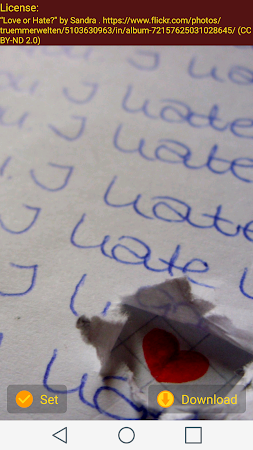 License:
"Love or Hate?" by Sandra . https://www.flickr.com/photos/
truemmerwelten/5103630963/in/album-72157625031028645/ (CC
BY-ND 2.0)
I hate
I hate
I hate
I hate
I hate
I
Set
Download